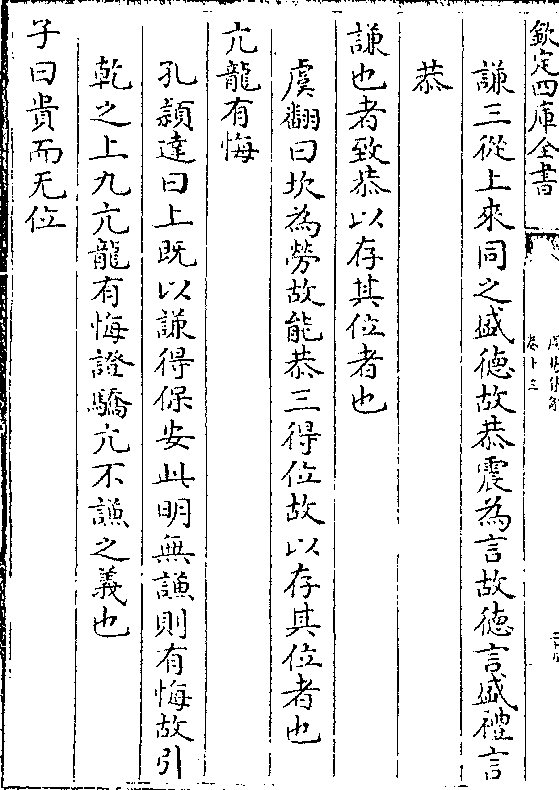 欽定四庫全書
卷十三
謙三從上來同之盛徳故恭震為言故徳言盛禮言
恭
謙也者致恭以存其位者也
虞翻曰坎為勞故能恭三得位故以存其位者也
亢龍有悔
孔穎達曰上既以謙得保安此明無謙則有悔故引
乾之上九亢龍有悔證驕亢不謙之義也
子曰貴而无位